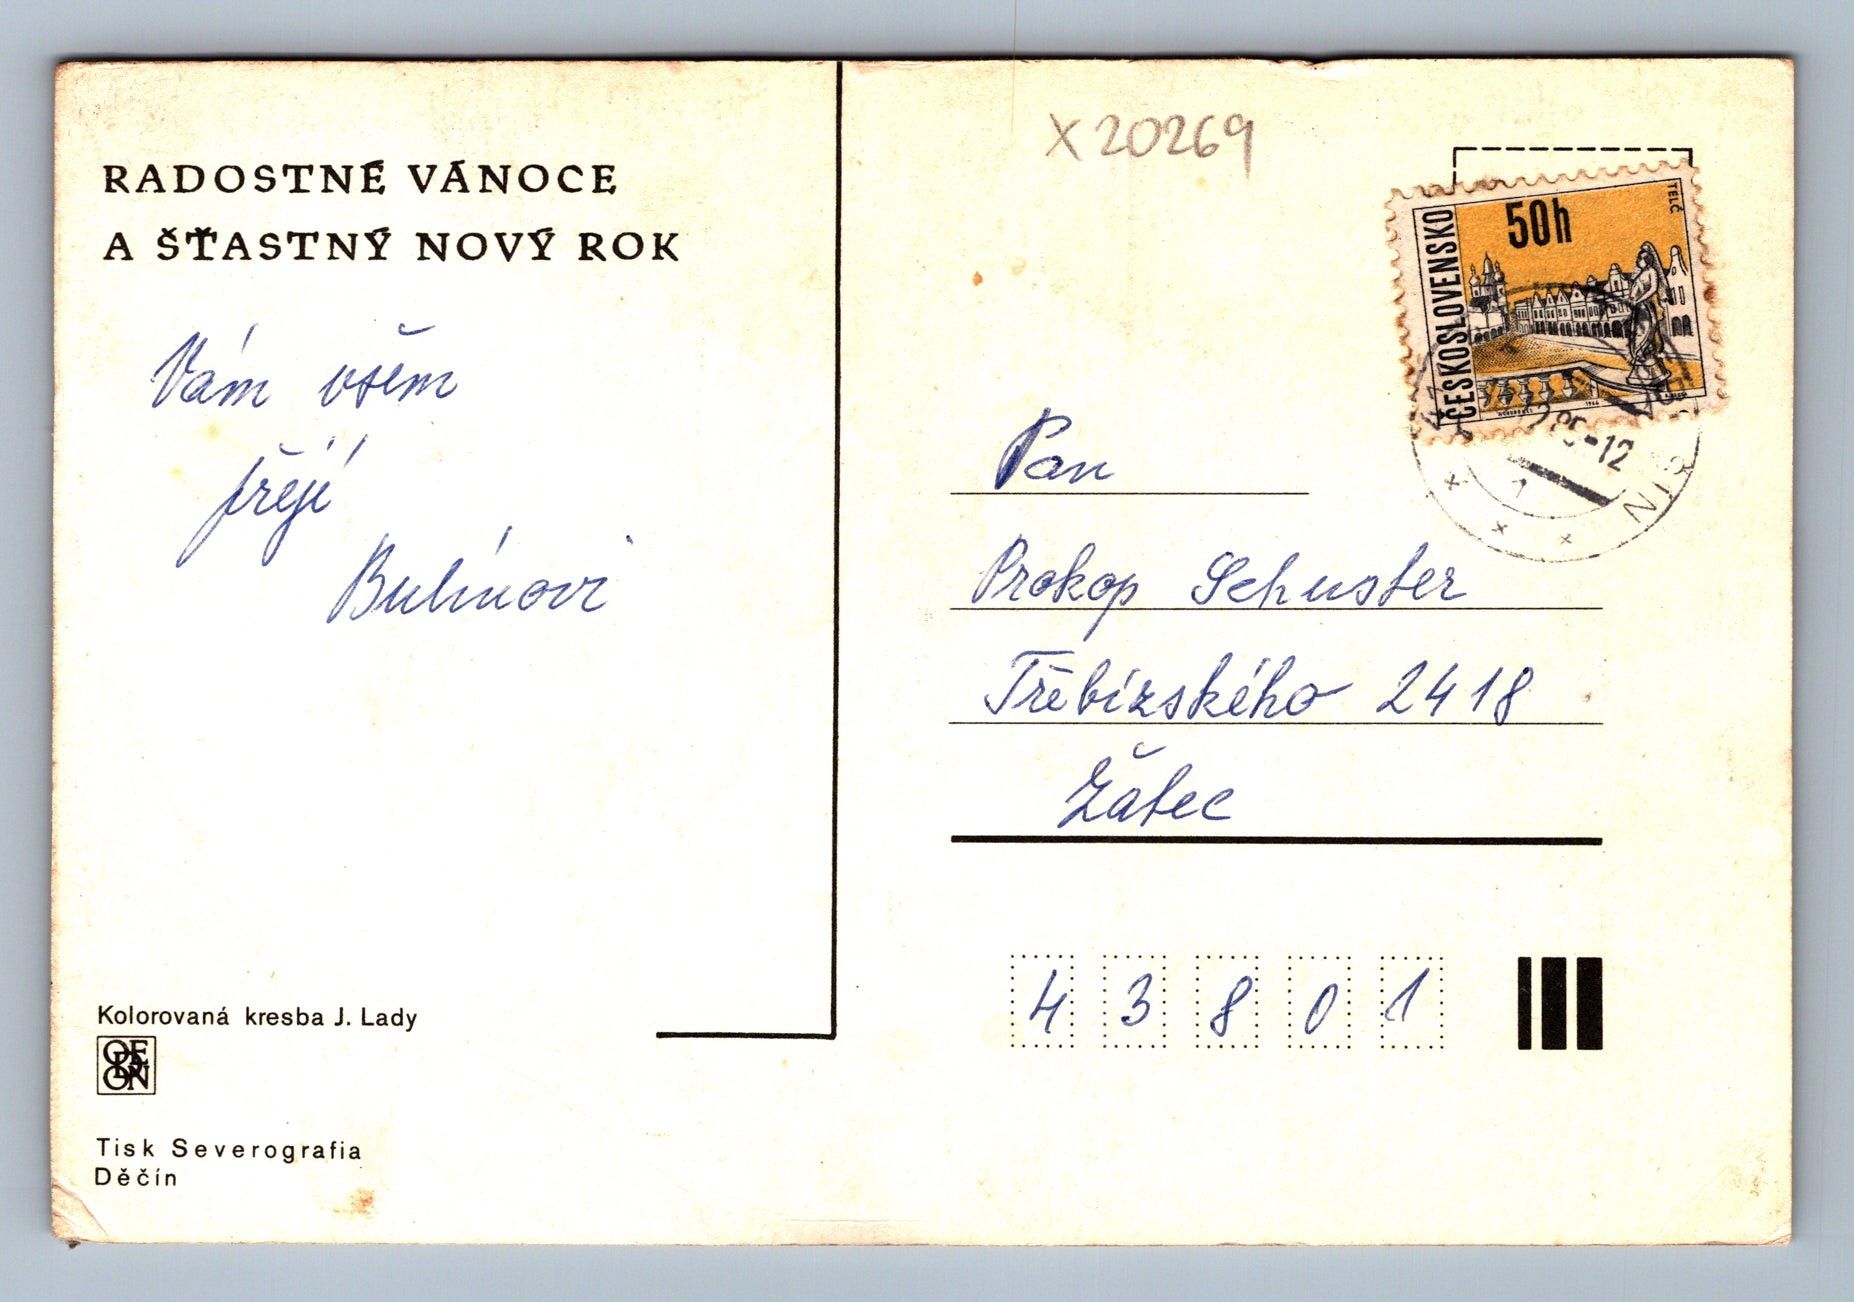 RADOSTNÉ VÁNOCE
A ŠŤASTNÝ NOVÝ ROK
Vám všem
přejí
Bulínovi
Kolorovaná kresba J. Lady
ODEON
Tisk Severografia
Děčín
X 20269
ČESKOSLOVENSKO
50h
TELČ
1966
-12
Pan
Prokop Schuster
Třebízského 2418
Žatec
43801